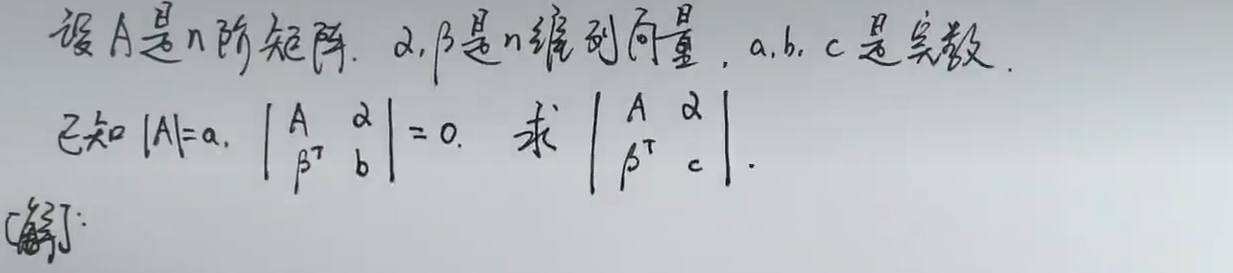 设A是n阶矩阵. α,β是n维列向量, a.b.c是实数.
已知 |A|=a, | A α ; β^T b | = 0. 求 | A α ; β^T c |.
[解]: